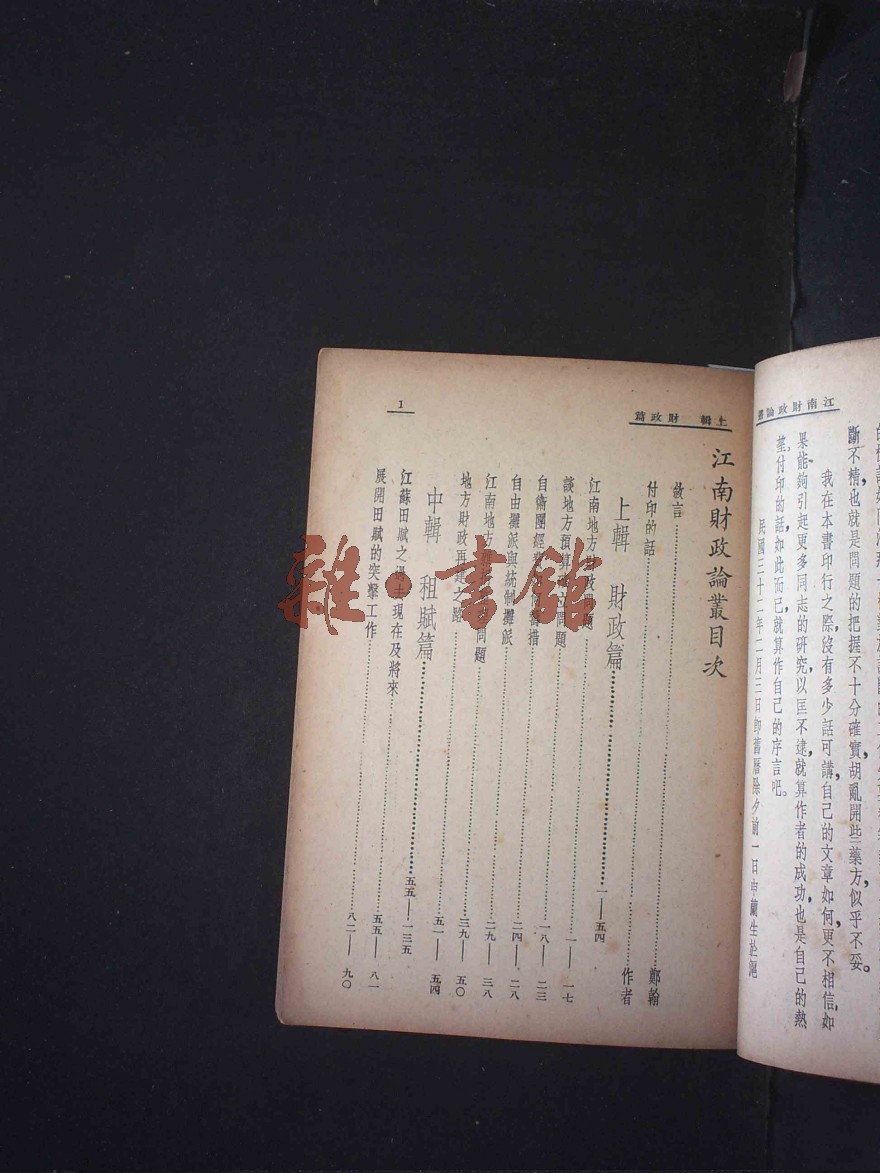 江南財政論叢
斷不精,也就是問題的把握不十分確實,胡亂開些藥方,似乎不妥。
我在本書印行之際,沒有多少話可講,自己的文章如何,更不相信,如
果能夠引起更多同志的研究,以匡不逮,就算作者的成功,也是自己的熱
望,付印的話,如此而已,就算作自己的序言吧。
民國三十二年二月三日卽舊曆除夕前一日申蘭生於滬
上輯 財政篇
1
江南財政論叢目次
敘言 鄭翰
付印的話 作者
上輯 財政篇 一——五四
江南地方財政問題 一——一七
談地方預算確立問題 一八——二三
自衛團經費 二四——二八
自由攤派與統制攤派 二九——三八
江南地方 問題 三九——五〇
地方財政再建之路 五一——五四
中輯 租賦篇 五五——一三五
江蘇田賦之過去現在及將來 五五——八一
展開田賦的突擊工作 八二——九〇
雜·書館